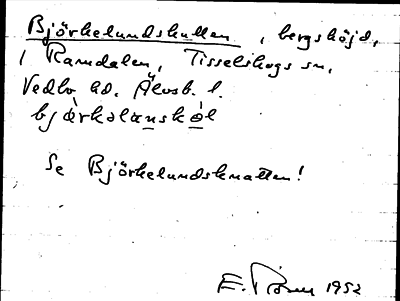 Björkelundskullen, bergshöjd,
i Ramdalen, Tisselskogs sn,
Vedbo hd. Älvsb. l.
bjärkəlunskəl
Se Björkelundsknatten!
E. 1952